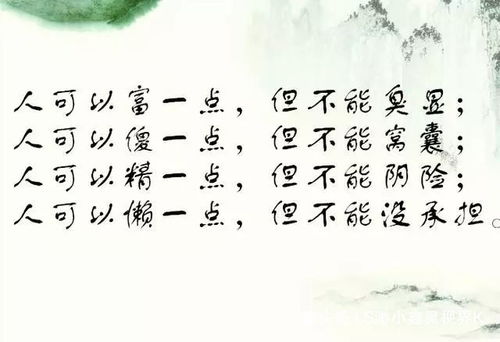 人可以富一点，但不能臭显；
人可以傻一点，但不能窝囊；
人可以精一点，但不能阴险；
人可以懒一点，但不能没承担。